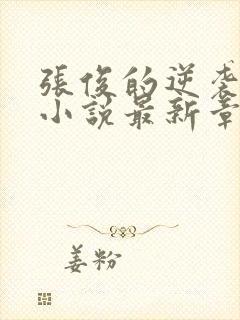 張俊的逆袭
小說最新章
姜粉